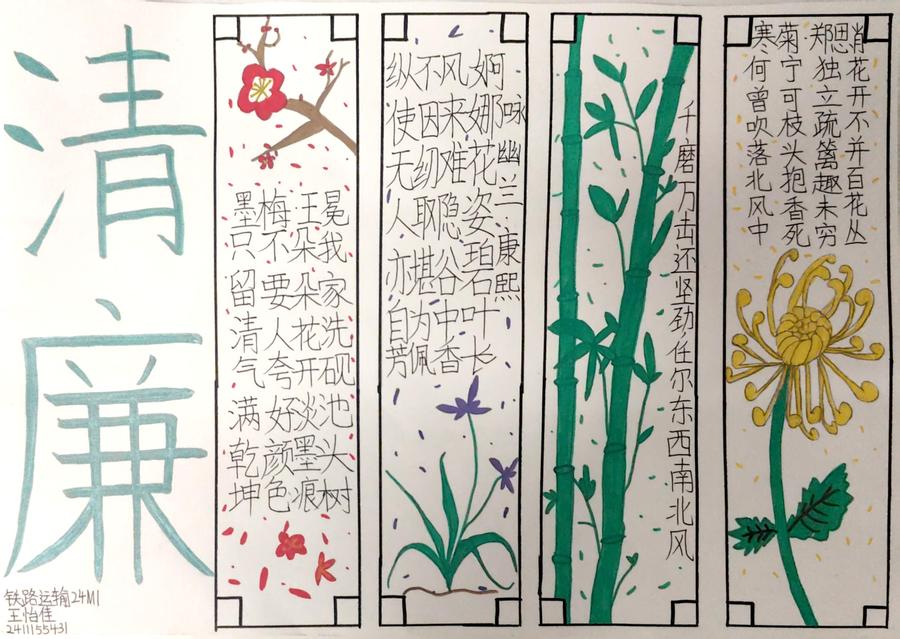 清廉
铁路运输24M1
王怡佳
2411155431
墨梅王冕
我家洗砚池头树
朵朵花开淡墨痕
不要人夸好颜色
只留清气满乾坤
咏幽兰·康熙
婀娜花姿碧叶长
风来难隐谷中香
不因纫取堪为佩
纵使无人亦自芳
千磨万击还坚劲任尔东西南北风
寒菊郑思肖
花开不并百花丛
独立疏篱趣未穷
宁可枝头抱香死
何曾吹落北风中